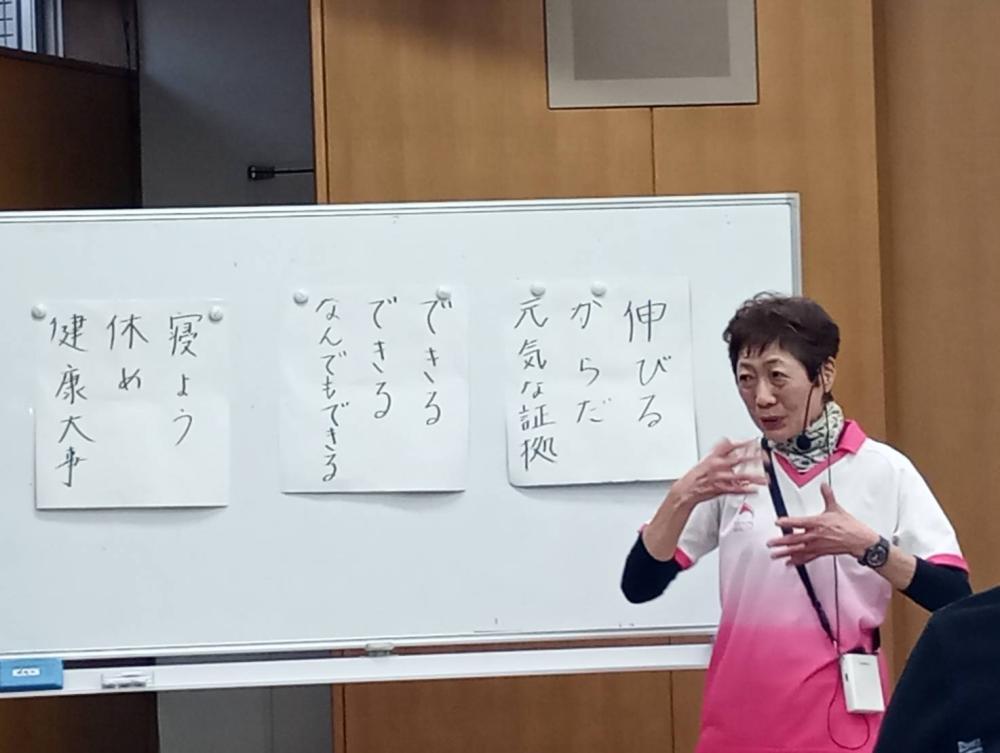 伸びる
からだ
元気な証拠
できる
できる
なんでもできる
寝よう
休め
健康大事